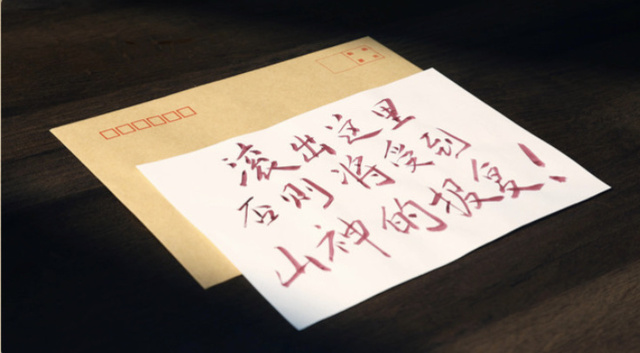 滚出这里
否则将受到
山神的报复！